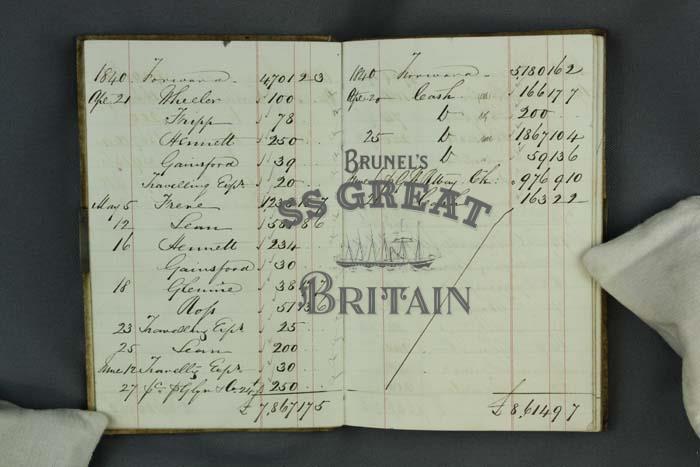 1840 Forward 4701 2 3
Ape 21 Wheeler 100
Tripp 78
Hennett 250
Gainsford 39
Travelling Exps 20
May 5 Irene
12 Lean
16 Hennett 234
Gainsford 30
18 Glennie
Ross
23 Travelling Exps 25
25 Lean 200
June 12 Travellg Exps 30
27 250
£ 7,867 17 5
1840 Forward 5180 16 2
Ape 20 Cash 166 17 7
Do 200
25 Do 1867 10 4
Do 59 13 6
976 9 10
163 2 2
£ 8,614 9 7
BRUNEL'S
SS GREAT
BRITAIN